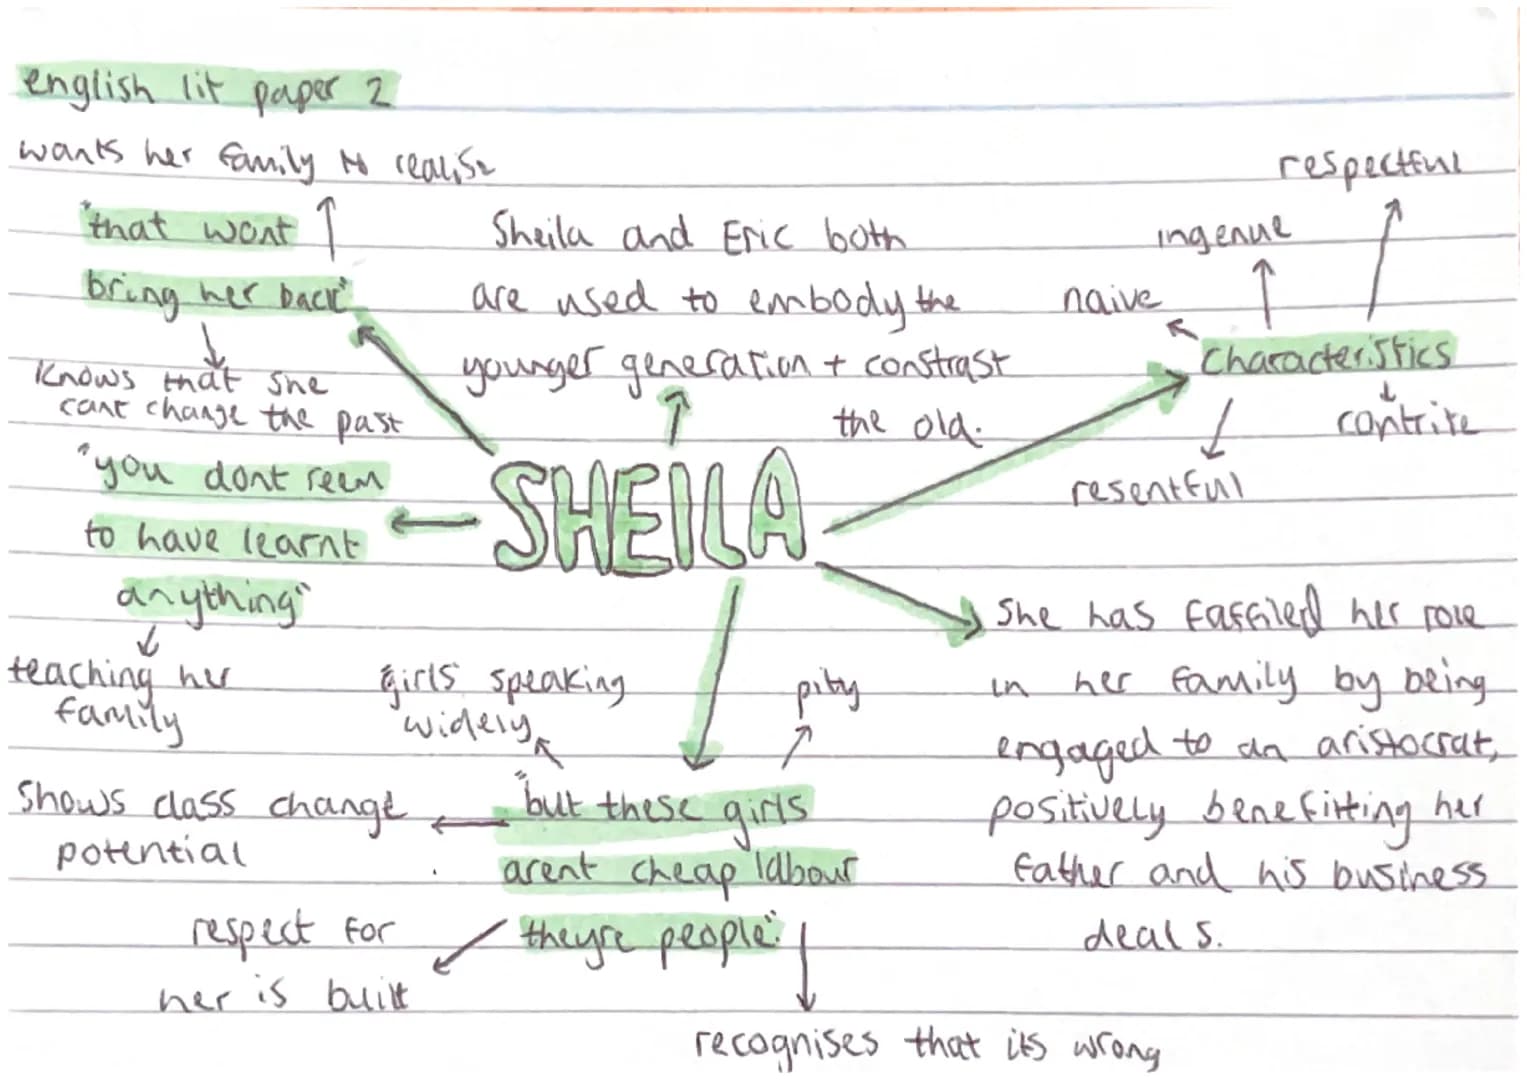 english lit paper 2
wants her family to realise
"that wont
bring her back"
knows that she
cant change the past
"you dont seem
to have learnt
anything"
teaching her
family
Sheila and Eric both
are used to embody the
younger generation + constrast
the old.
respectful
ingenue
naive
characteristics
contrite
resentful
SHEILA
She has
her role
in her family by being
engaged to an aristocrat,
positively benefitting her
father and his business
deals.
girls speaking
widely
pity
"but these girls
arent cheap labour
theyre people".
shows class change
potential
respect for
her is built
recognises that its wrong